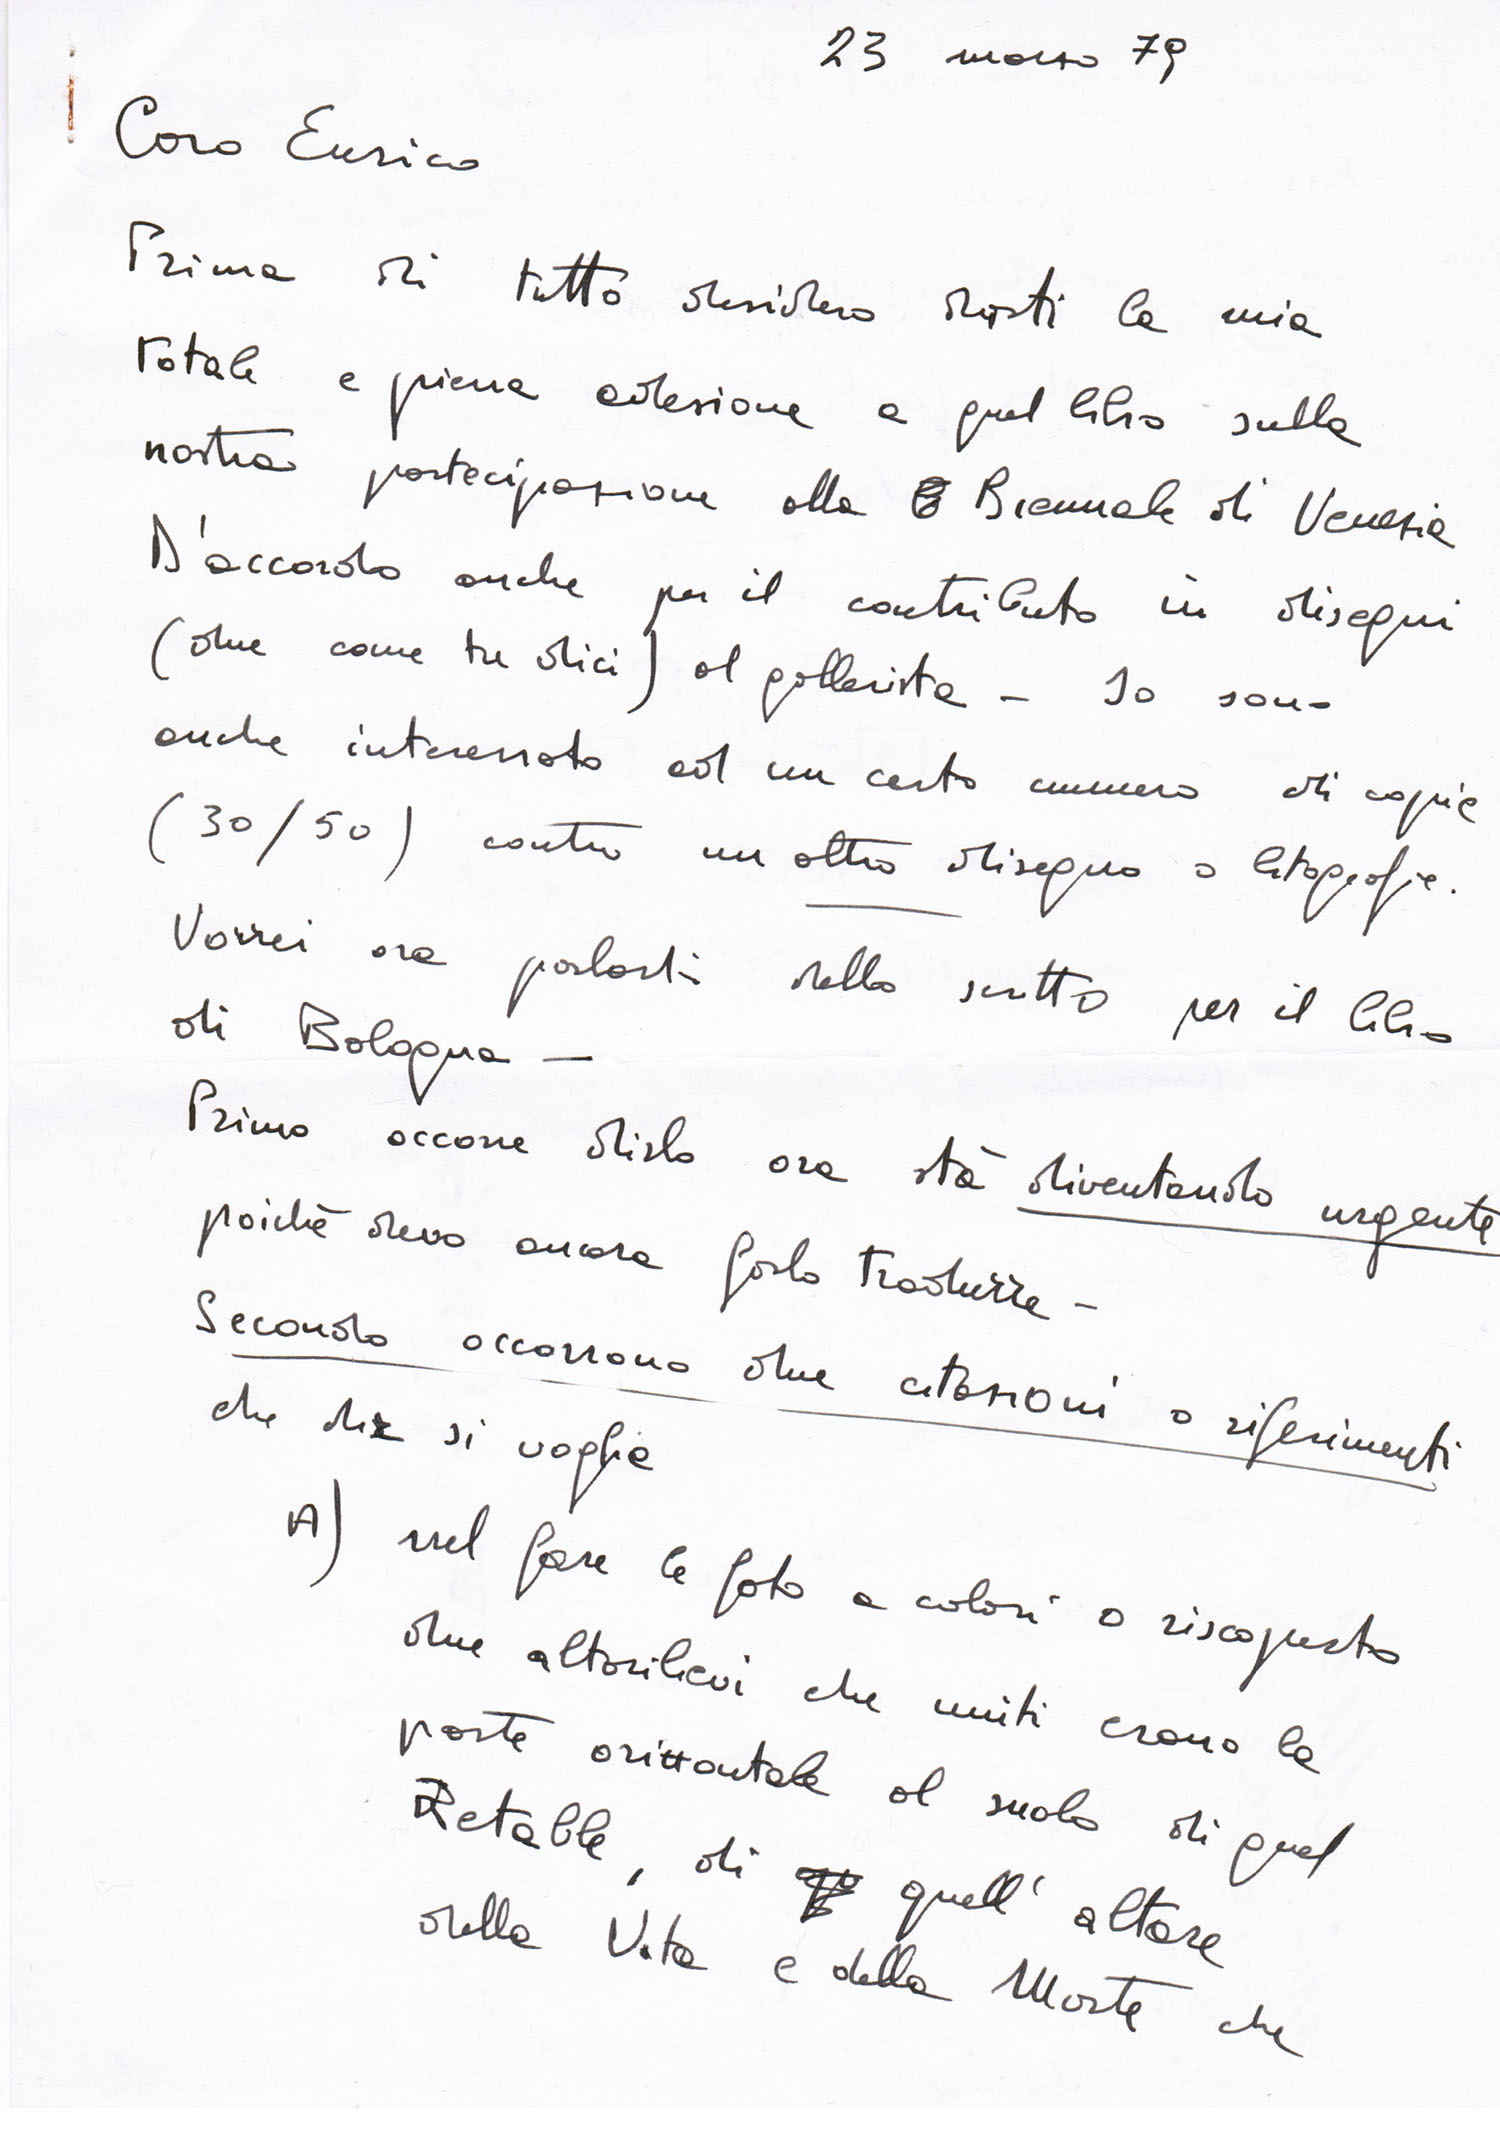 23 marzo 79
Caro Enrico
Prima di tutto desidero darti la mia
totale e piena adesione a quel libro sulla
nostra partecipazione alla Biennale di Venezia
D'accordo anche per il contributo in disegni
(due come tu dici) al gallerista – Io sono
anche interessato ad un certo numero di copie
(30/50) contro un altro disegno o litografie.
Vorrei ora parlarti dello scritto per il libro
di Bologna –
Primo occorre dirlo ora stà diventando urgente
poichè devo ancora farlo tradurre –
Secondo occorrono due citazioni o riferimenti
che si voglie
A) nel fare le foto a colori o riscoperto
due altorilievi che uniti erano la
parte orizzontale al suolo di quel
Retable, di quell'altare
della Vita e della Morte che